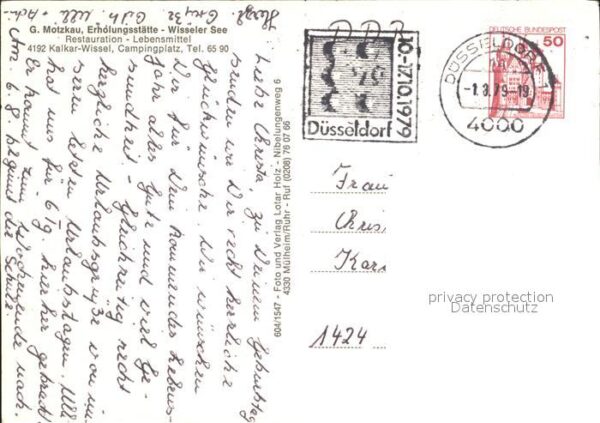 G. Motzkau, Erholungsstätte - Wisseler See
Restauration - Lebensmittel
4192 Kalkar-Wissel, Campingplatz, Tel. 65 90
Liebe Christa, zu Deinem Geburtstag
senden wir Dir recht herzliche
Glückwünsche. Wir wünschen
Dir für Dein kommendes Lebens-
jahr alles Gute und viel Ge-
sundheit. Gleichzeitig recht
herzliche Urlaubsgrüße von un-
seren letzten Urlaubstagen. Ulli
hat uns für 6 Tg. hierher gebracht
Er kommt zum Wochenende nach.
Am 6.8. beginnt die Schule.
Herzl. Grüße
604/1547 - Foto und Verlag Lotar Holz - Nibelungenweg 6
4330 Mülheim/Ruhr - Ruf (0208) 76 07 66
DDR
10.-17.10.1979
79
Düsseldorf
DÜSSELDORF
-1.8.79-19
4000
DEUTSCHE BUNDESPOST
50
Frau
Chris
Kar
1424
privacy protection
Datenschutz